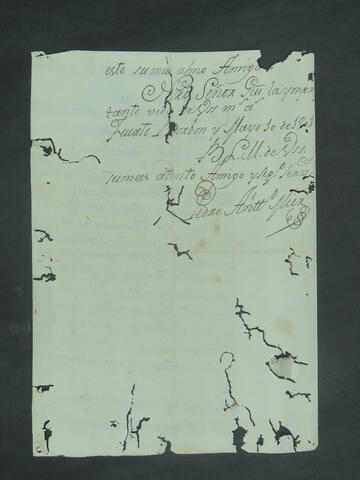 este su mas afmo Amigo
Ntro Señor Gue la ympor
tante vida de Vs ms as
Fuerte Borbon y Mayo 10 de
B. L. M. de Vss.
su mas atento Amigo y Segº Servr
Pedro Anttº Mier